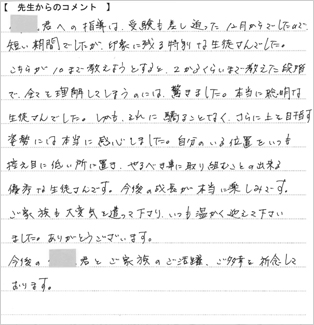 【 先生からのコメント 】
君への指導は、受験も差し迫った12月からでしたので
短い期間でしたが、印象に残る特別な生徒さんでした。
こちらが10まで教えようとすると、2か3くらいまで教えた段階
で、全てを理解してしまうのには、驚きました。本当に聡明な
生徒さんでした。しかも、それに驕ることなく、さらに上を目指す
姿勢には本当に感心しました。自分のいる位置をいつも
控え目に低い所に置き、やるべき事に取り組むことの出来る
優秀な生徒さんです。今後の成長が本当に楽しみです。
ご家族も大変気を遣って下さり、いつも温かく迎えて下さい
ました。ありがとうございます。
今後の 君とご家族のご活躍、ご多幸を祈念して
おります。